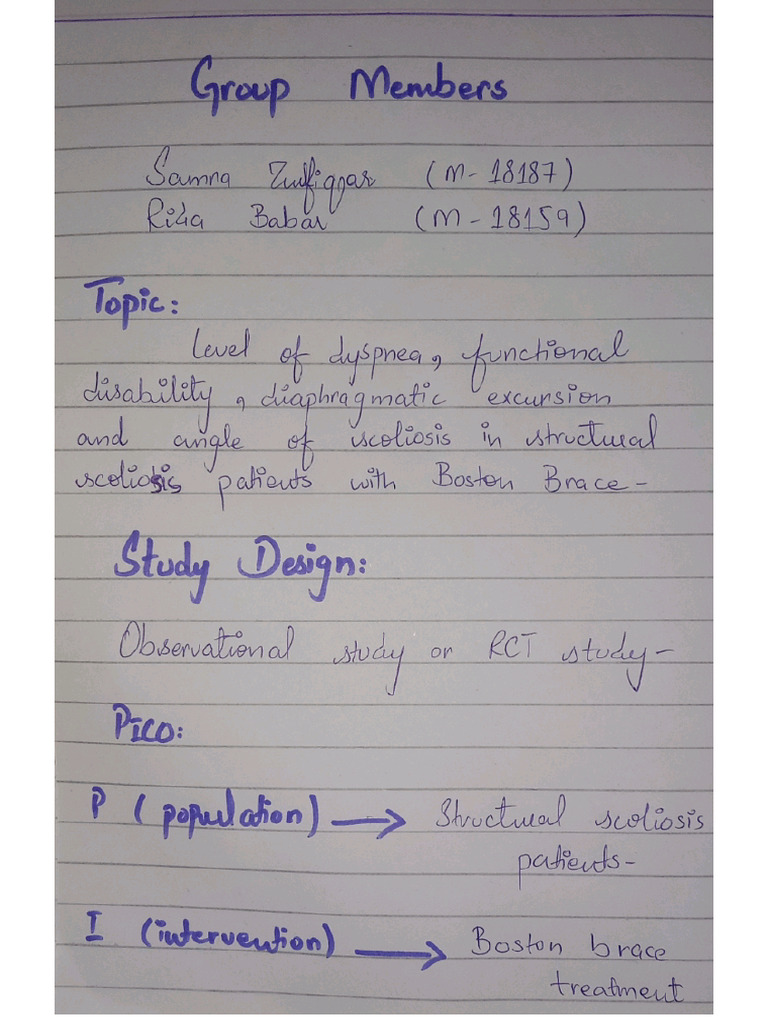 Group Members
Samna Zulfiqar (M-18187)
Rida Babar (M-18159)
Topic:
Level of dyspnea, functional
disability, diaphragmatic excursion
and angle of scoliosis in structural
scoliosis patients with Boston Brace-
Study Design:
Observational study or RCT study-
PICO:
P (population) → Structural scoliosis
patients-
I (intervention) → Boston brace
treatment